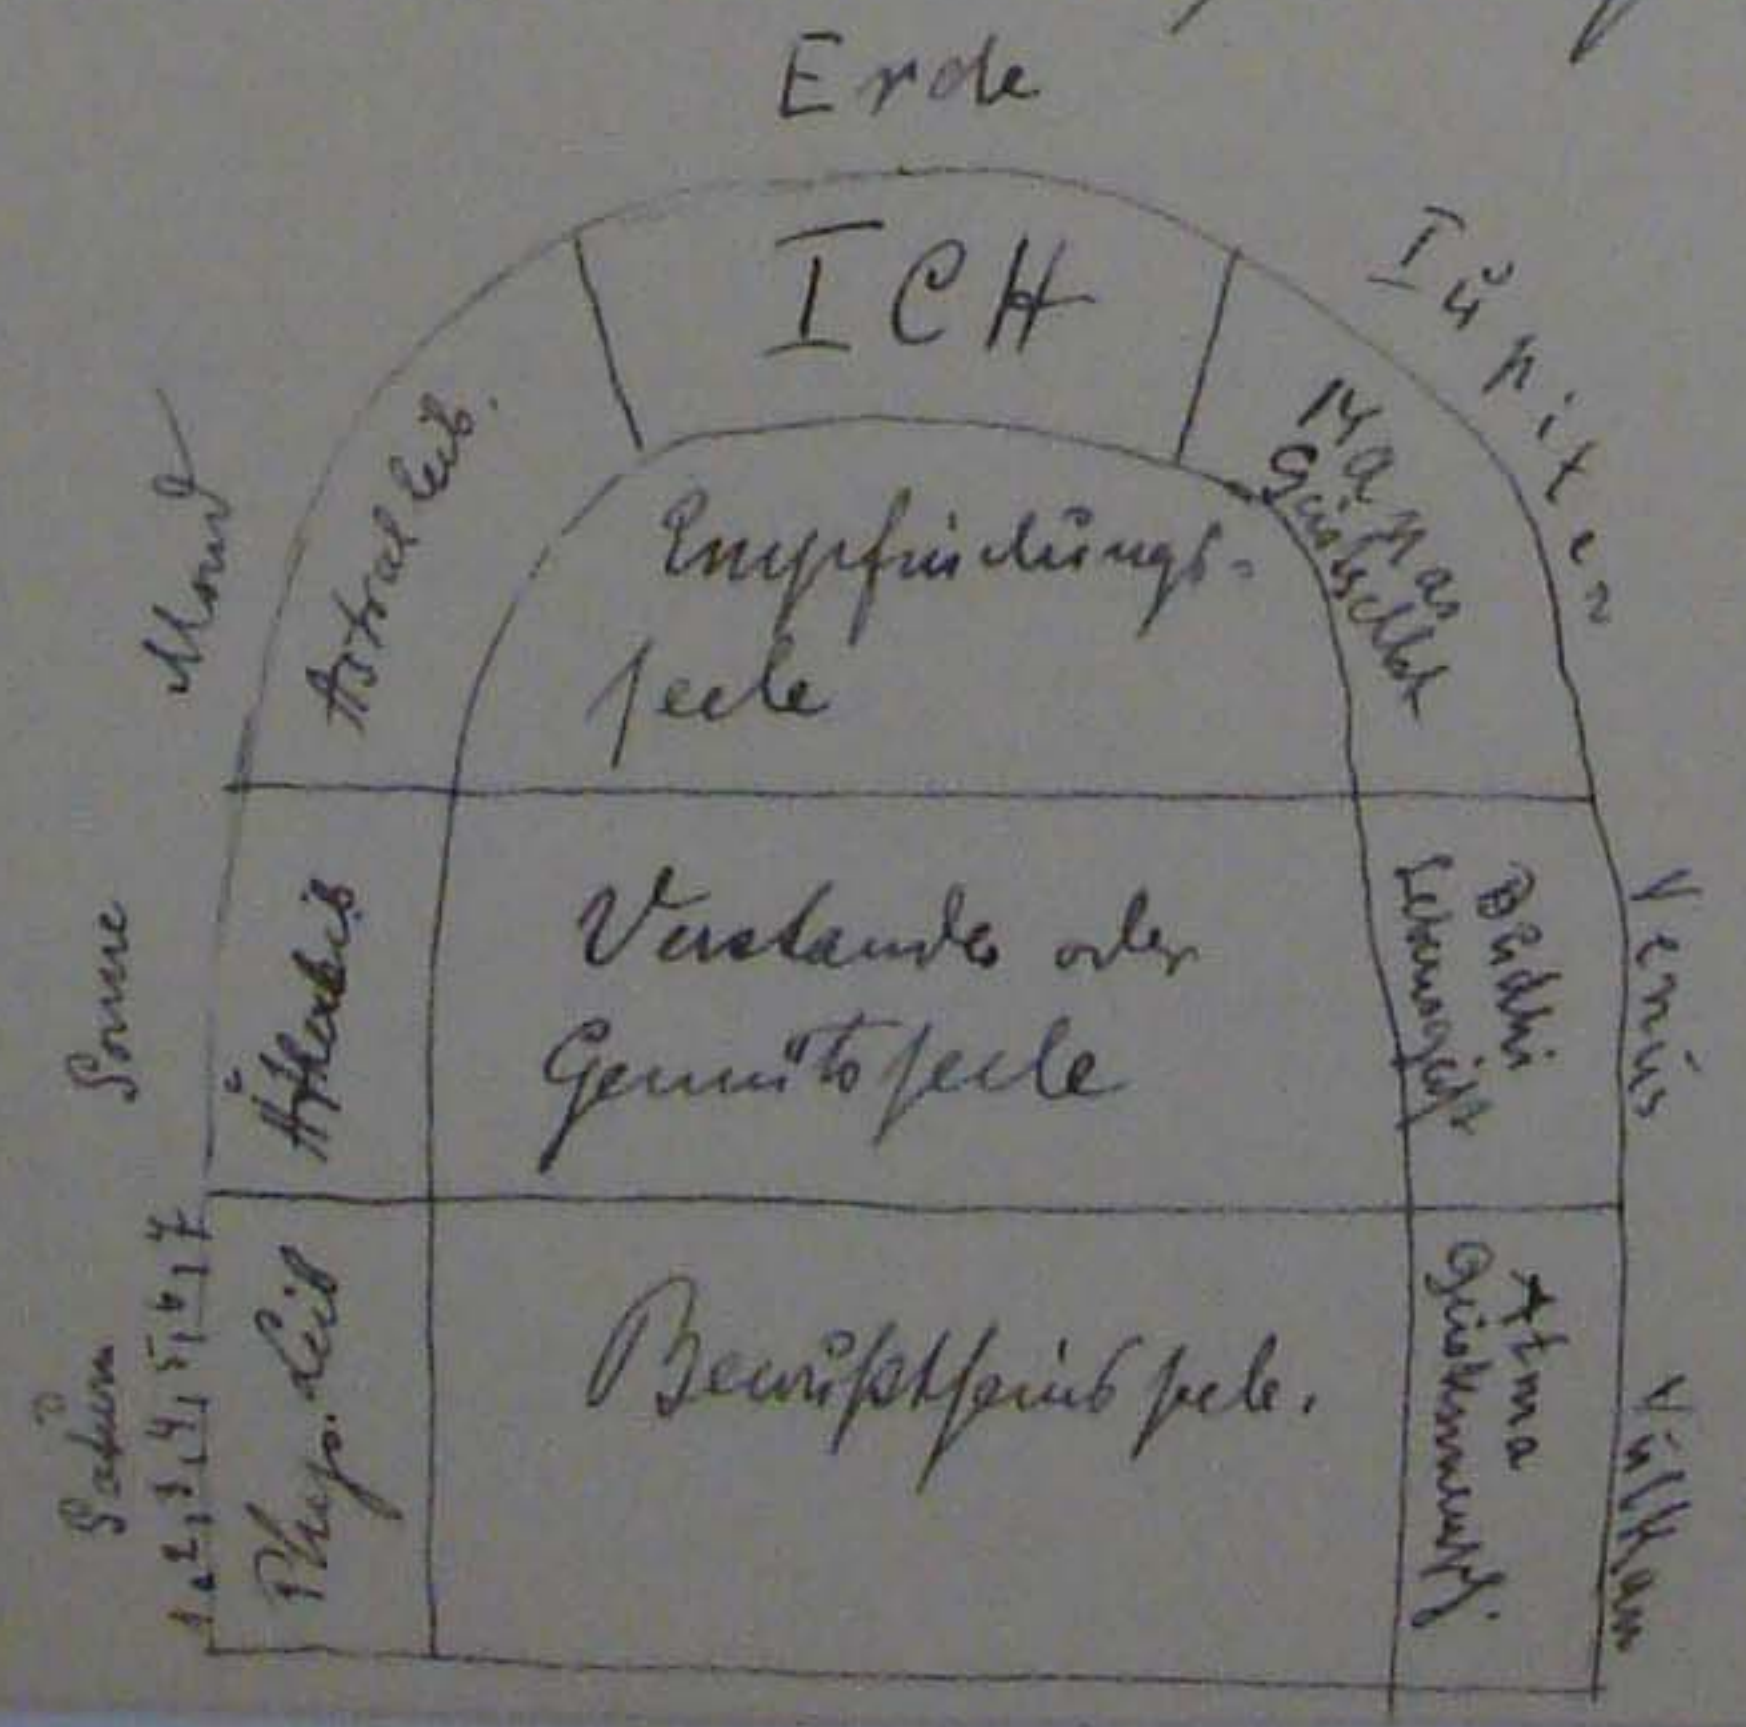 Erde
ICH
Jŭpiter
Manas
Geistselbst
Mond
Astralleib.
Empfindŭngs-
seele
Sonne
Ätherleib
Verstandes oder
Gemütsseele
Bŭdhi
Lebensgeist
Venŭs
Satŭrn
1 2 3 4 5 6 7
Phys. Leib
Bewŭßtseinsseele.
Atma
Geistesmensch.
Vŭlkan